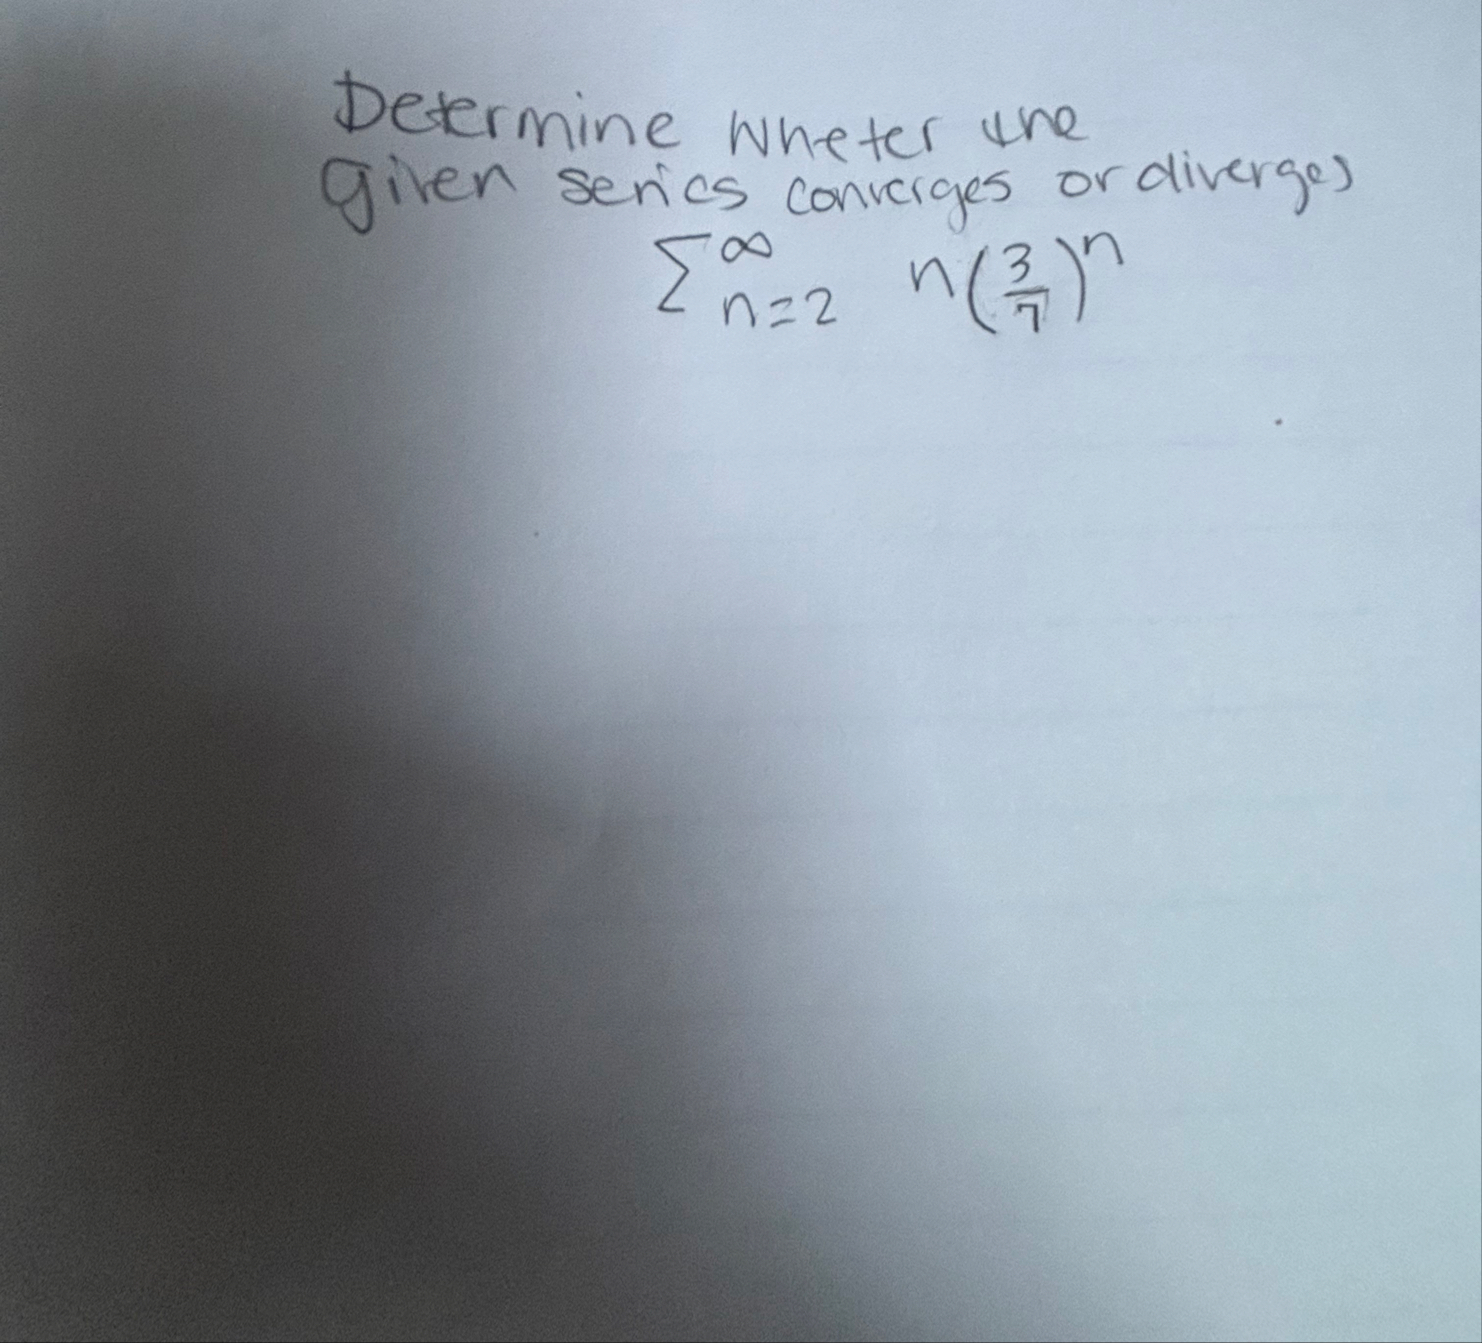 Determine Wheter the
given series converges or diverges
∑ ∞ n=2 n(3/7)^n